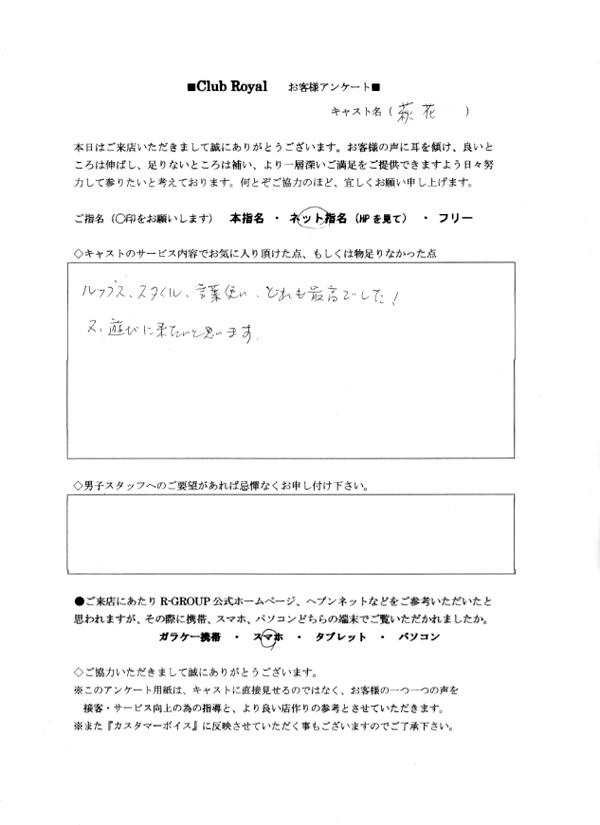 ■Club Royal お客様アンケート■
キャスト名 ( 萩花 )
本日はご来店いただきまして誠にありがとうございます。お客様の声に耳を傾け、良いと
ころは伸ばし、足りないところは補い、より一層深いご満足をご提供できますよう日々努
力して参りたいと考えております。何とぞご協力のほど、宜しくお願い申し上げます。
ご指名（○印をお願いします） 本指名 ・ ネット指名（HPを見て） ・ フリー
◇キャストのサービス内容でお気に入り頂けた点、もしくは物足りなかった点
ルックス、スタイル、言葉使い、どれも最高でした！
又、遊びに来たいと思います。
◇男子スタッフへのご要望があれば忌憚なくお申し付け下さい。
●ご来店にあたり R-GROUP 公式ホームページ、ヘブンネットなどをご参考いただいたと
思われますが、その際に携帯、スマホ、パソコンどちらの端末でご覧いただかれましたか。
ガラケー携帯 ・ スマホ ・ タブレット ・ パソコン
◇ご協力いただきまして誠にありがとうございます。
※このアンケート用紙は、キャストに直接見せるのではなく、お客様の一つ一つの声を
接客・サービス向上の為の指導と、より良い店作りの参考とさせていただきます。
※また『カスタマーボイス』に反映させていただく事もございますのでご了承下さい。